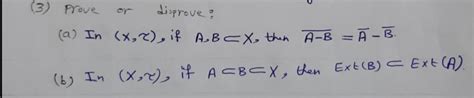 (3) Prove or disprove:
(a) In (X,τ), if A,B⊂X, then \overline{A-B} = \overline{A} - \overline{B}.
(b) In (X,τ), if A⊂B⊂X, then Ext(B) ⊂ Ext(A).